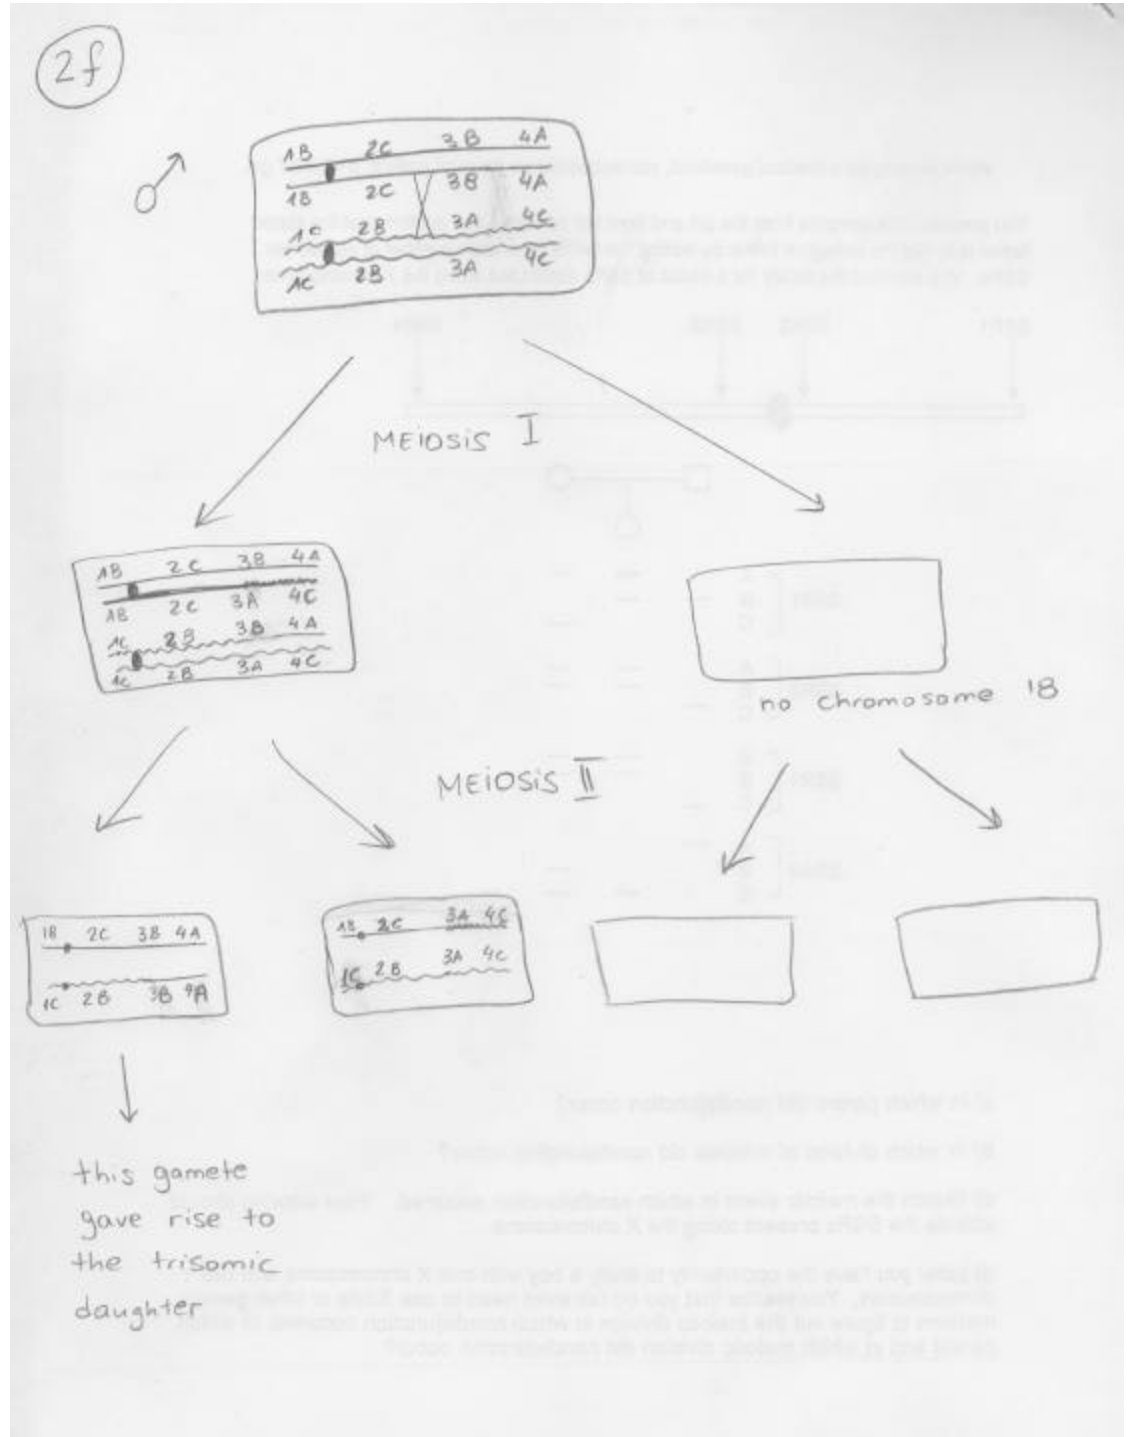 2f
1B 2C 3B 4A
1B 2C 3B 4A
1C 2B 3A 4C
1C 2B 3A 4C
MEIOSIS I
1B 2C 3B 4A
1B 2C 3A 4C
1C 2B 3B 4A
1C 2B 3A 4C
no chromosome 18
MEIOSIS II
1B 2C 3B 4A
1C 2B 3B 4A
1B 2C 3A 4C
1C 2B 3A 4C
this gamete
gave rise to
the trisomic
daughter